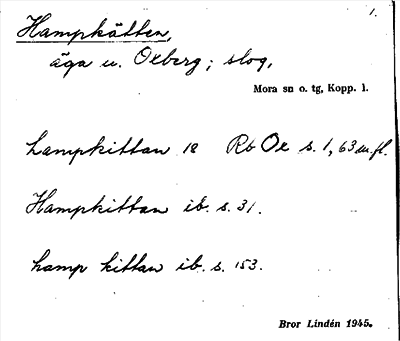 1.
Hampkätten,
äga u. Oxberg; slog,
Mora sn o. tg, Kopp. l.
hampkittan 18 Rb Ox s. 1, 63 m. fl.
Hampkittan ib. s. 31.
hamp kittan ib. s. 153.
Bror Lindén 1945.